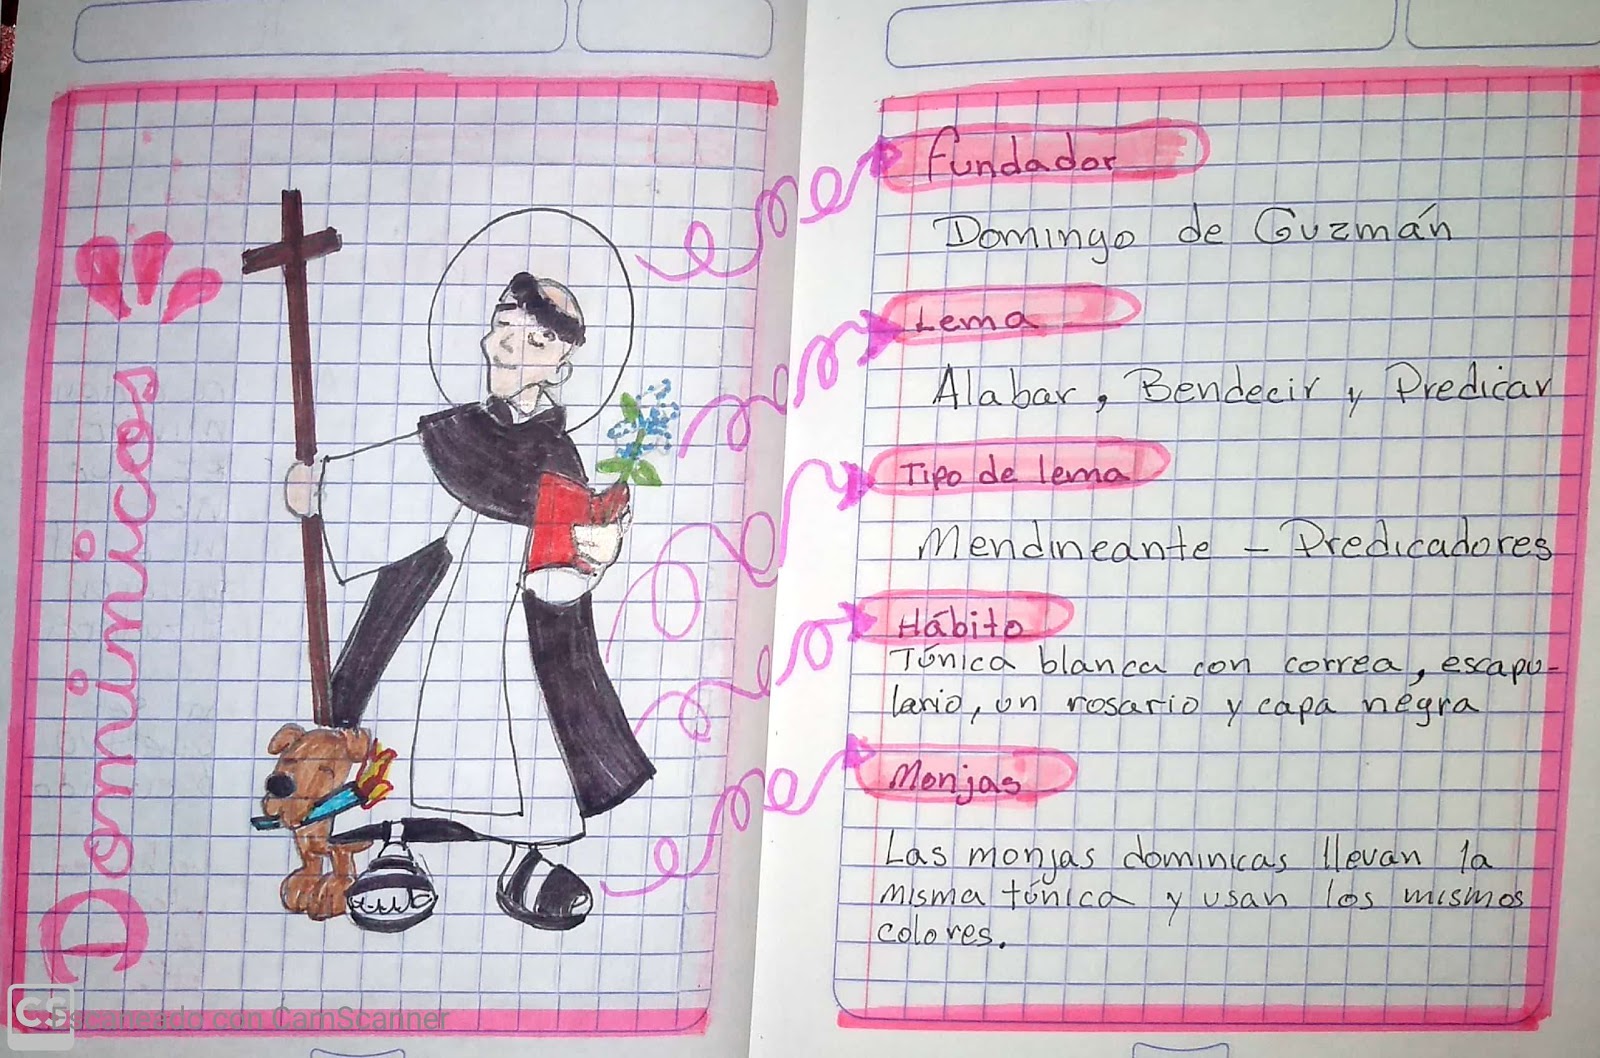 Dominicos
Fundador
Domingo de Guzmán
Lema
Alabar, Bendecir y Predicar
Tipo de lema
Mendineante - Predicadores
Hábito
Túnica blanca con correa, escapu-
lario, un rosario y capa negra
Monjas
Las monjas dominicas llevan la
misma túnica y usan los mismos
colores.
CS Escaneado con CamScanner